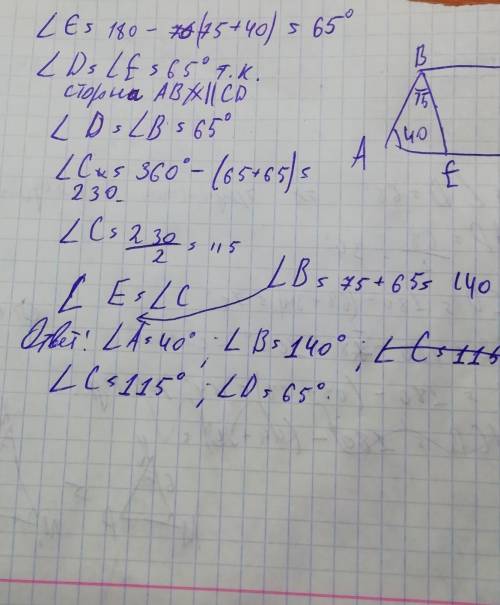 ∠E = 180 - (75+40) = 65°
∠D = ∠E = 65° т.к.
сторна AB ∦ CD
∠D = ∠B = 65°
∠C = 360° - (65+65) =
230
∠C = 230/2 = 115
∠B = 75 + 65 = 140
∠ E = ∠C
Ответ: ∠A = 40° ; ∠B = 140° ; ∠C = 115
∠C = 115° ; ∠D = 65°.
B
75
40
A
E